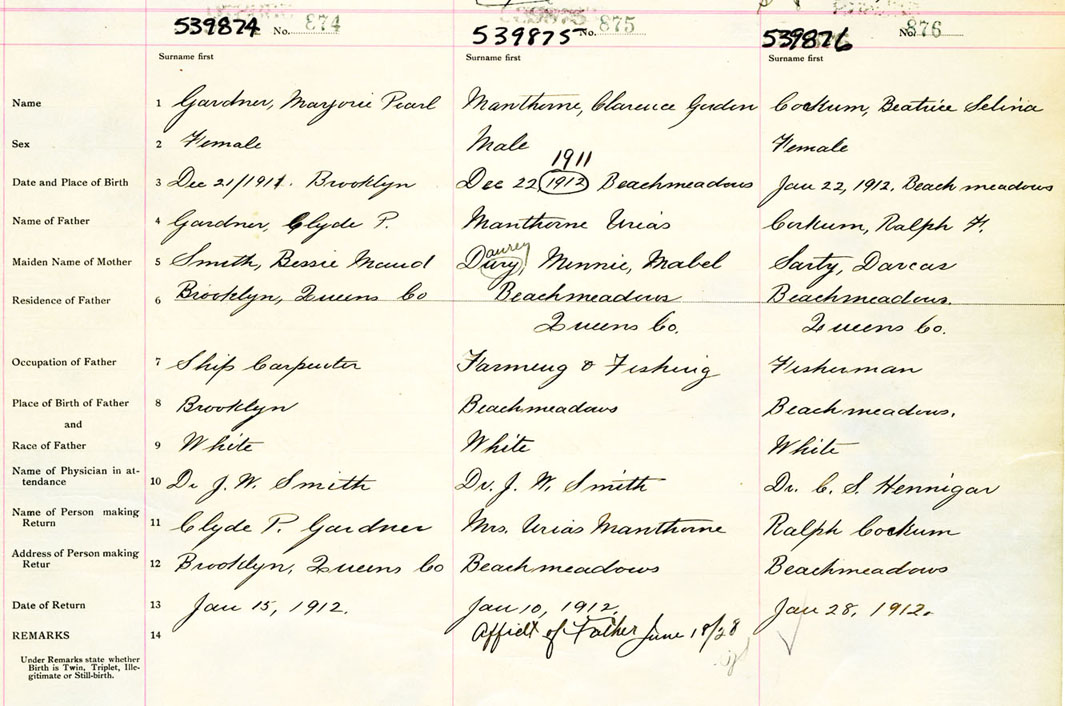 539874 No. 874 539875 No. 875 539876 No. 876
Surname first Surname first Surname first
Name 1 Gardner, Marjorie Pearl Manthorne, Clarence Gordon Cockum, Beatrice Selina
Sex 2 Female Male Female
1911
Date and Place of Birth 3 Dec 21/1911. Brooklyn Dec 22, 1912 Beachmeadows Jan 22, 1912. Beachmeadows
Name of Father 4 Gardner, Clyde P. Manthorne Urias Cockum, Ralph F.
Daurey
Maiden Name of Mother 5 Smith, Bessie Maud Dury, Minnie, Mabel Sarty, Darcas
Residence of Father 6 Brooklyn, Queens Co Beachmeadows Beachmeadows.
Queens Co. Queens Co.
Occupation of Father 7 Ship Carpenter Farmeng & Fishing Fisherman
Place of Birth of Father 8 Brooklyn Beachmeadows Beachmeadows.
and
Race of Father 9 White White White
Name of Physician in at-
tendance 10 Dr J. W. Smith Dr. J. W. Smith Dr. C. S. Hennigar
Name of Person making
Return 11 Clyde P. Gardner Mrs. Urias Manthorne Ralph Cockum
Address of Person making
Retur 12 Brooklyn, Queens Co Beachmeadows Beachmeadows
Date of Return 13 Jan 15, 1912. Jan 10, 1912. Jan 28, 1912.
REMARKS 14 Affidt of Father June 18/28
Under Remarks state whether
Birth is Twin, Triplet, Ille-
gitimate or Still-birth.